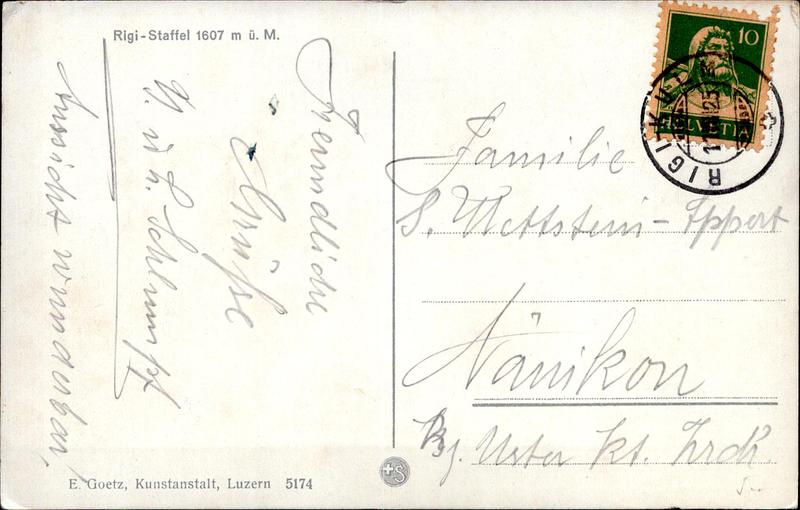 Rigi-Staffel 1607 m ü. M.
Freundliche
Grüsse
u. L. Schlumpf
Aussicht wunderbar!
Familie
S. Wettstein-Eppert
Nänikon
Bz. Uster Kt. Zrch.
10
HELVETIA
RIGI KULM
E. Goetz, Kunstanstalt, Luzern 5174
+S